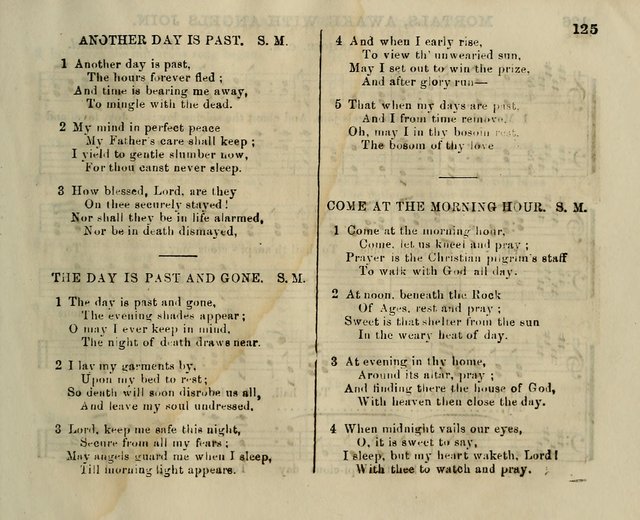 125
ANOTHER DAY IS PAST. S. M.
1 Another day is past,
The hours forever fled ;
And time is bearing me away,
To mingle with the dead.
2 My mind in perfect peace
My Father's care shall keep ;
I yield to gentle slumber now,
For thou canst never sleep.
3 How blessed, Lord, are they
On thee securely stayed !
Nor shall they be in life alarmed,
Nor be in death dismayed,
THE DAY IS PAST AND GONE. S. M.
1 The day is past and gone,
The evening shades appear ;
O may I ever keep in mind,
The night of death draws near.
2 I lay my garments by,
Upon my bed to rest ;
So death will soon disrobe us all,
And leave my soul undressed.
3 Lord, keep me safe this night,
Secure from all my fears ;
May angels guard me when I sleep,
Till morning light appears.
4 And when I early rise,
To view th' unwearied sun,
May I set out to win the prize,
And after glory run—
5 That when my days are past,
And I from time remove,
Oh, may I in thy bosom rest,
The bosom of thy love
COME AT THE MORNING HOUR. S. M.
1 Come at the morning hour,
Come, let us kneel and pray ;
Prayer is the Christian pilgrim's staff
To walk with God all day.
2 At noon, beneath the Rock
Of Ages, rest and pray ;
Sweet is that shelter from the sun
In the weary heat of day.
3 At evening in thy home,
Around its altar, pray ;
And finding there the house of God,
With heaven then close the day.
4 When midnight vails our eyes,
O, it is sweet to say,
I sleep, but my heart waketh, Lord!
With thee to watch and pray.